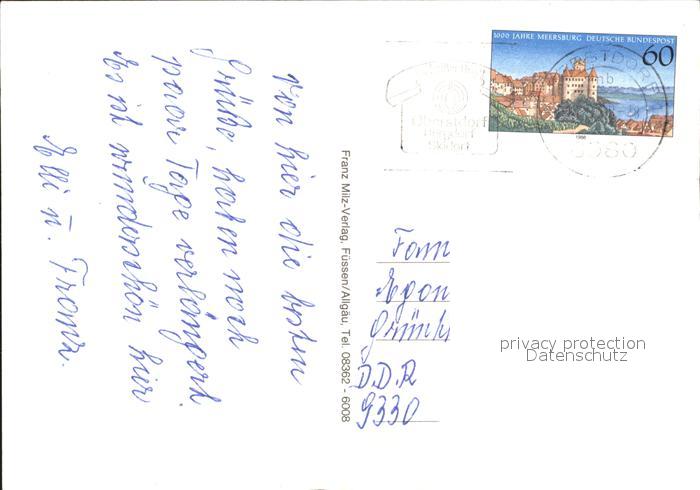 von hier die besten
Grüße, haben noch
paar Tage verlängert.
Es ist wunderschön hier
Elli u. Franz.
Franz Milz-Verlag, Füssen/Allgäu, Tel. 08362 - 6008
1000 JAHRE MEERSBURG DEUTSCHE BUNDESPOST
60
1988
Oberstdorf
Heildorf
Skidorf
Fam
Egon
D.D.R
9330
privacy protection
Datenschutz